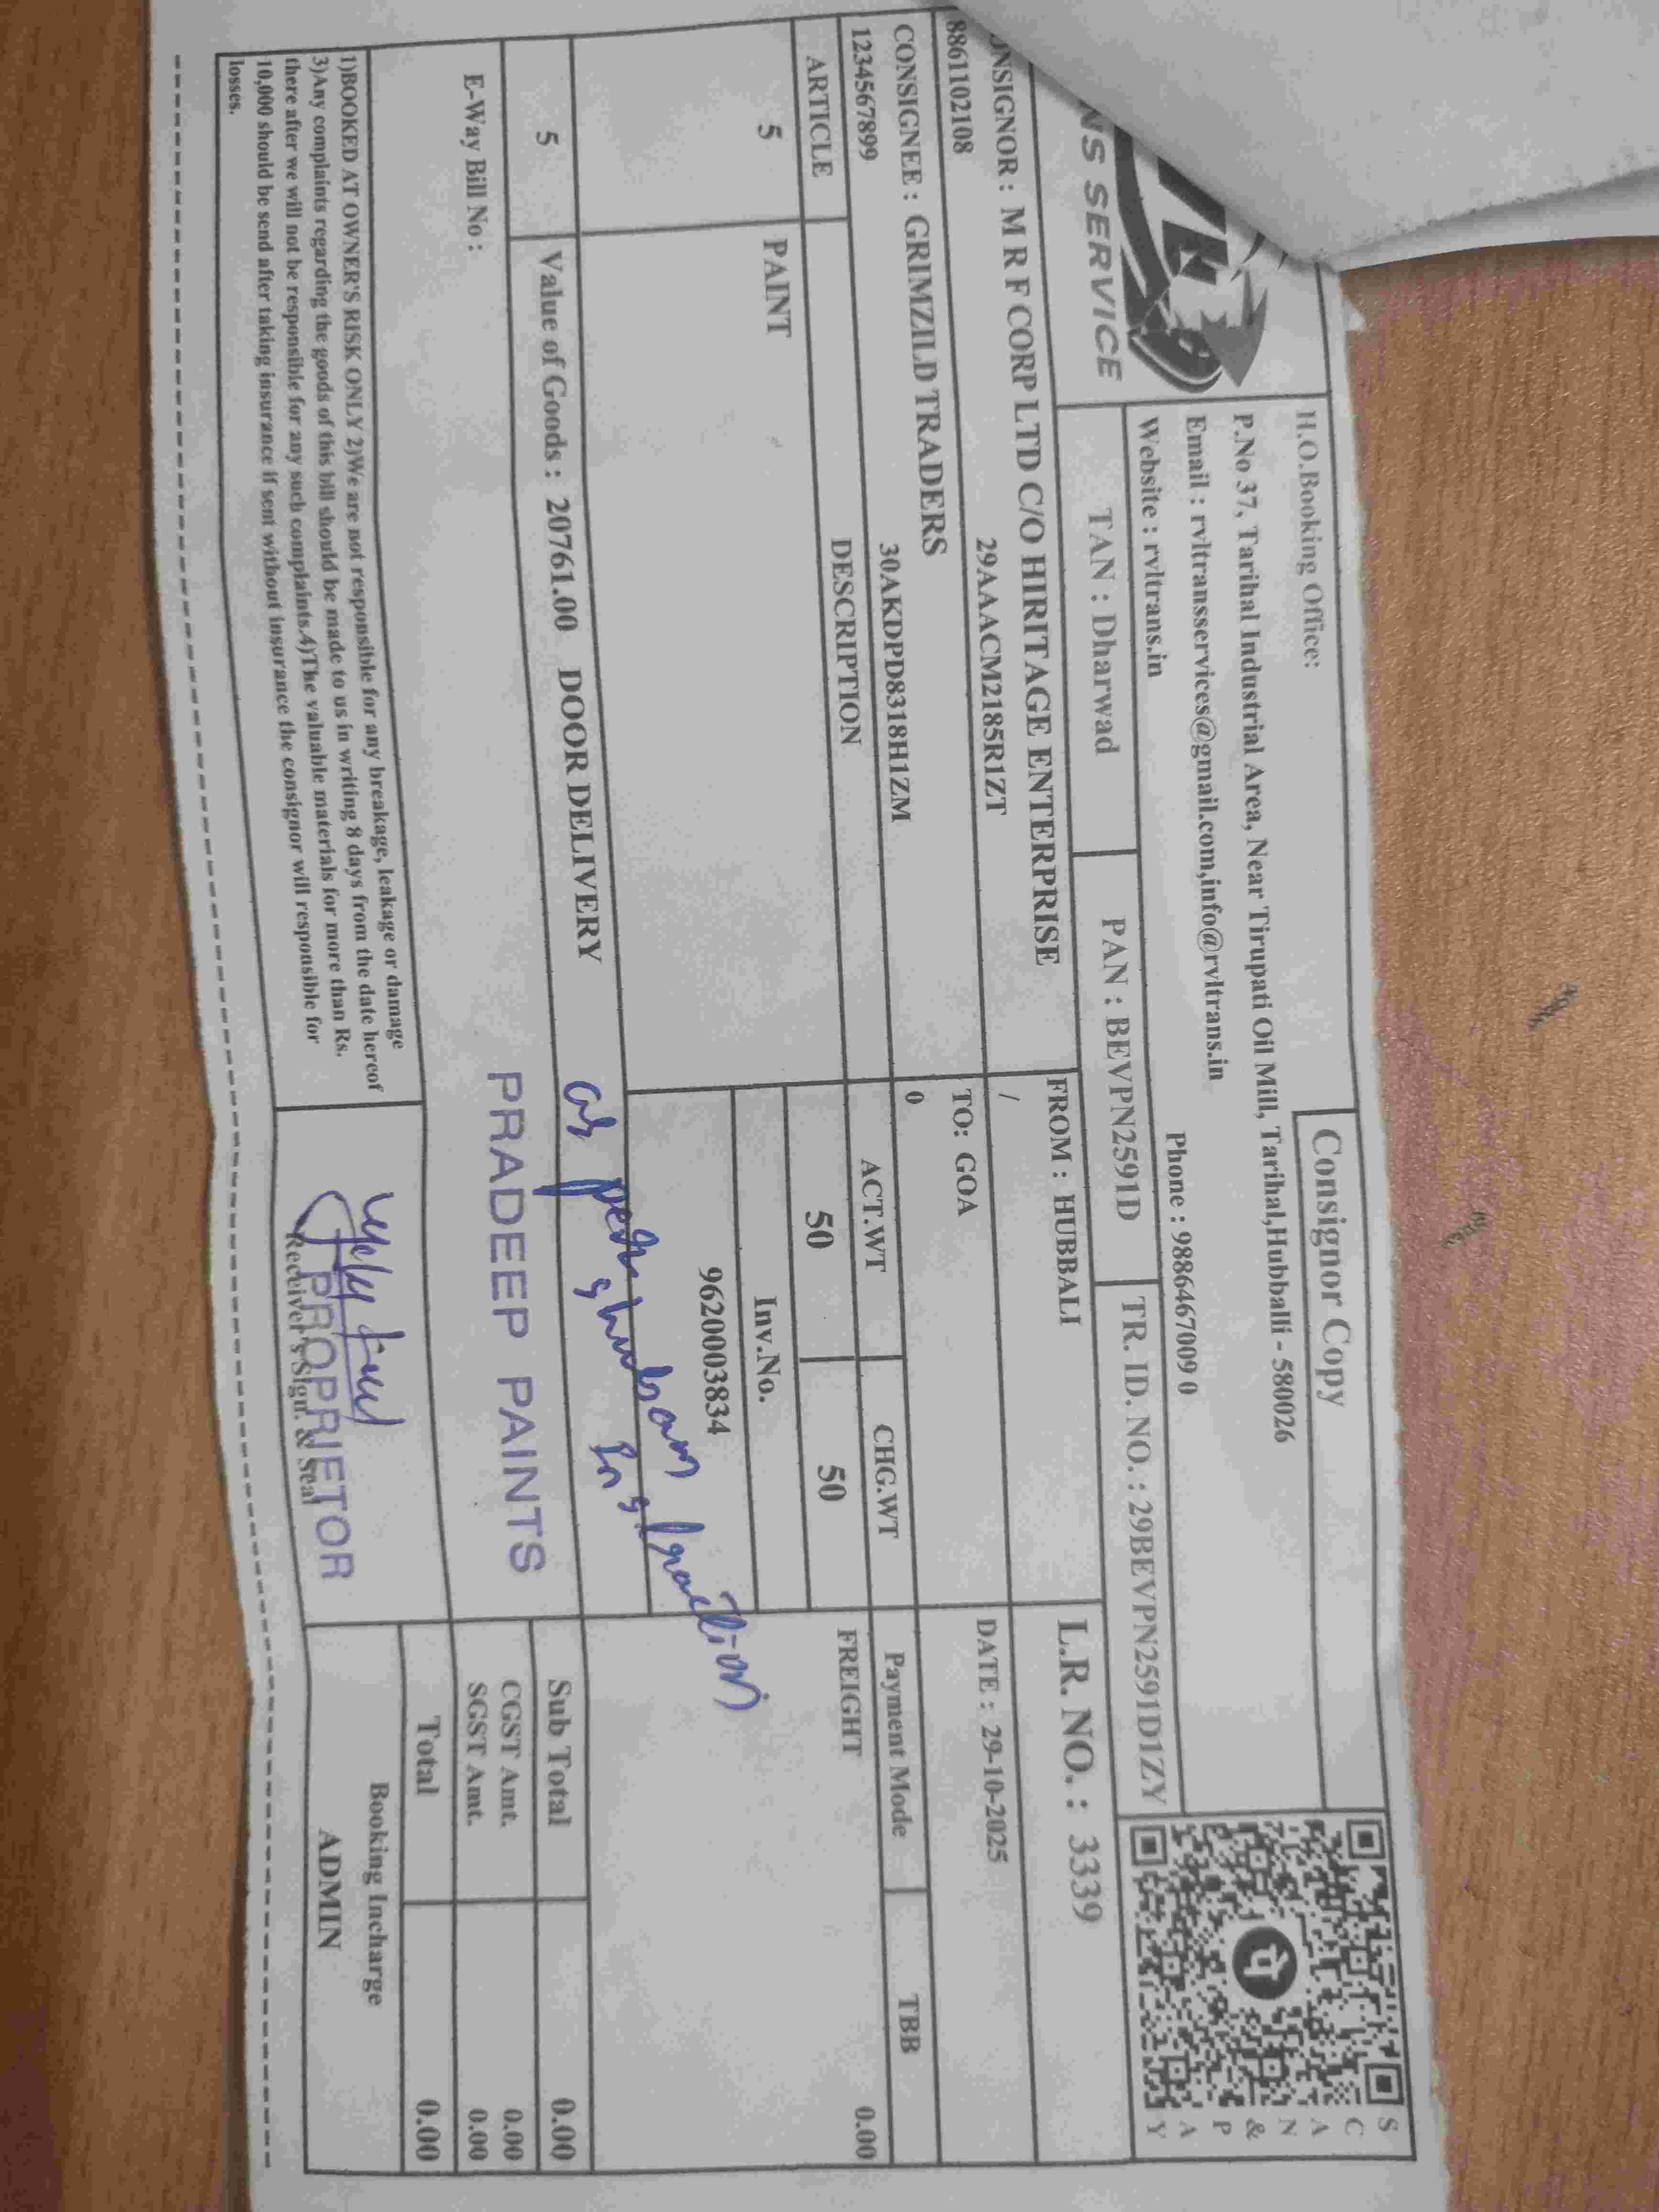 Consignor Copy
H.O.Booking Office:
P.No 37, Tarihal Industrial Area, Near Tirupati Oil Mill, Tarihal,Hubballi - 580026
Email : rvltransservices@gmail.com,info@rvltrans.in
Website : rvltrans.in Phone : 9886467009 0
NS SERVICE
SCAN & PAY
TAN : Dharwad PAN : BEVPN2591D TR. ID. NO. : 29BEVPN2591D1ZY
ONSIGNOR : M R F CORP LTD C/O HIRITAGE ENTERPRISE FROM : HUBBALI L.R. NO. : 3339
8861102108 29AAACM2185R1ZT /
CONSIGNEE : GRIMZILD TRADERS TO: GOA DATE : 29-10-2025
1234567899 30AKDPD8318H1ZM 0
ARTICLE DESCRIPTION ACT.WT CHG.WT Payment Mode TBB
5 PAINT 50 50 FREIGHT 0.00
Inv.No.
9620003834
as per shubham
Instruction
5 Value of Goods : 20761.00 DOOR DELIVERY Sub Total 0.00
PRADEEP PAINTS
E-Way Bill No : CGST Amt. 0.00
SGST Amt. 0.00
Total 0.00
1)BOOKED AT OWNER'S RISK ONLY 2)We are not responsible for any breakage, leakage or damage
3)Any complaints regarding the goods of this bill should be made to us in writing 8 days from the date hereof
there after we will not be responsible for any such complaints.4)The valuable materials for more than Rs.
10,000 should be send after taking insurance if sent without insurance the consignor will responsible for
losses.
PROPRIETOR
Receiver's Sign. & Seal
Booking Incharge
ADMIN